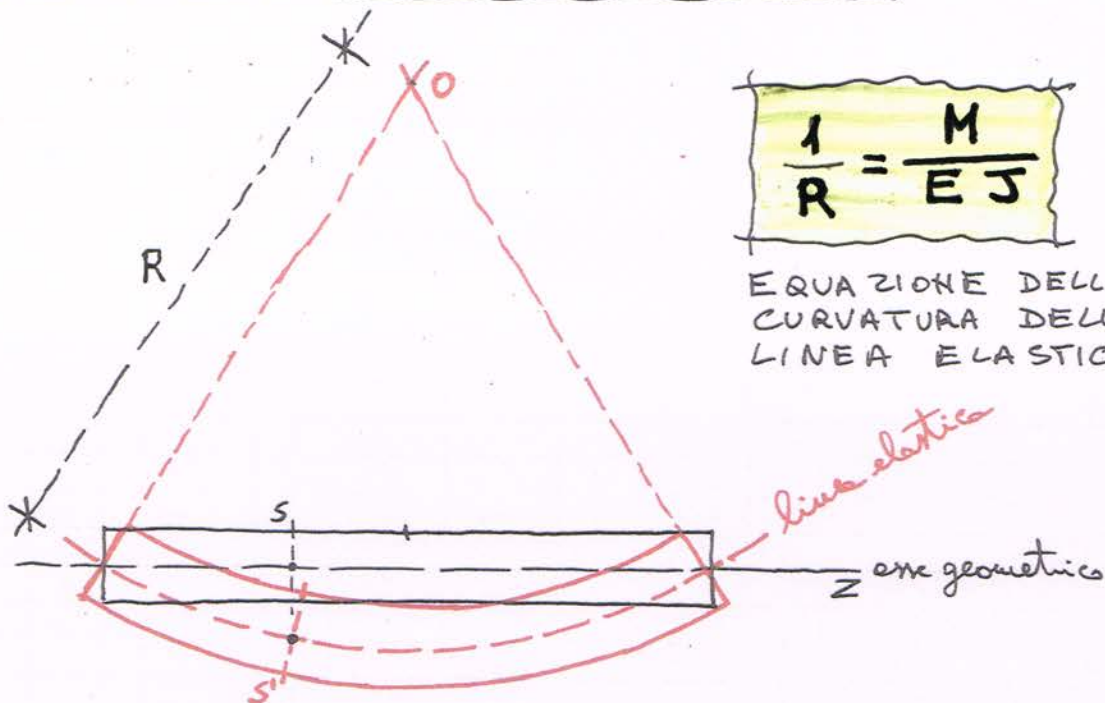 O
1/R = M/EJ
R
EQUAZIONE DELL
CURVATURA DELL
LINEA ELASTIC
linea elastica
S
Z asse geometrico
S'